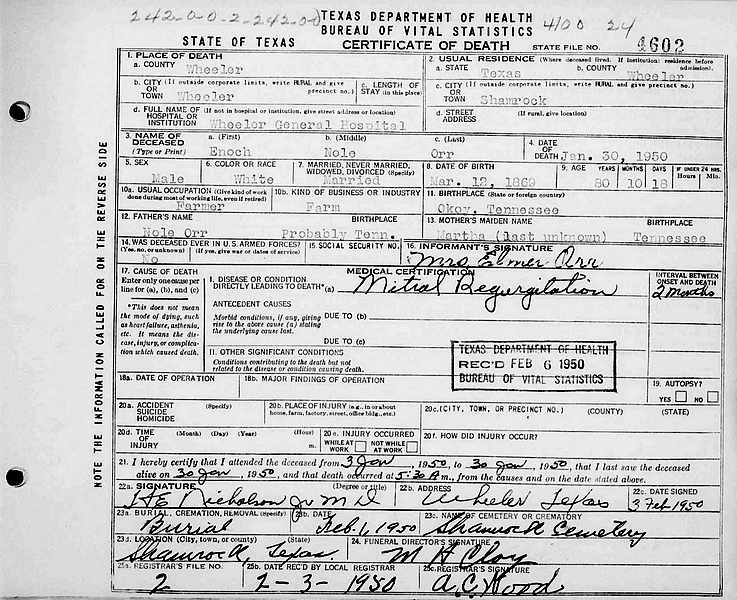 242-0-0-2-242-0-0 TEXAS DEPARTMENT OF HEALTH 4100 24
BUREAU OF VITAL STATISTICS
STATE OF TEXAS CERTIFICATE OF DEATH STATE FILE NO. 4602
1. PLACE OF DEATH 2. USUAL RESIDENCE (Where deceased lived. If institution: residence before admission).
a. COUNTY Wheeler a. STATE Texas b. COUNTY Wheeler
b. CITY (If outside corporate limits, write RURAL and give precinct no.) OR TOWN Wheeler c. LENGTH OF STAY (in this place) c. CITY (If outside corporate limits, write RURAL and give precinct no.) OR TOWN Shamrock
d. FULL NAME OF HOSPITAL OR INSTITUTION (If not in hospital or institution, give street address or location) Wheeler General Hospital d. STREET ADDRESS (If rural, give location)
3. NAME OF DECEASED (Type or Print) a. (First) Enoch b. (Middle) Nole c. (Last) Orr 4. DATE OF DEATH Jan. 30, 1950
5. SEX Male 6. COLOR OR RACE White 7. MARRIED, NEVER MARRIED, WIDOWED, DIVORCED (Specify) Married 8. DATE OF BIRTH Mar. 12, 1869 9. AGE YEARS 80 MONTHS 10 DAYS 18 IF UNDER 24 HRS. Hours Min.
10a. USUAL OCCUPATION (Give kind of work done during most of working life, even if retired) Farmer 10b. KIND OF BUSINESS OR INDUSTRY Farm 11. BIRTHPLACE (State or foreign country) Okoy, Tennessee
12. FATHER'S NAME Nole Orr BIRTHPLACE Probably Tenn. 13. MOTHER'S MAIDEN NAME Martha (last unknown) BIRTHPLACE Tennessee
14. WAS DECEASED EVER IN U.S. ARMED FORCES? (Yes, no, or unknown) No (If yes, give war or dates of service) 15. SOCIAL SECURITY NO. 16. INFORMANT'S SIGNATURE Mrs Elmer Orr
17. CAUSE OF DEATH MEDICAL CERTIFICATION INTERVAL BETWEEN ONSET AND DEATH
Enter only one cause per line for (a), (b), and (c) I. DISEASE OR CONDITION DIRECTLY LEADING TO DEATH* (a) Mitral Regurgitation 2 Months
*This does not mean the mode of dying, such as heart failure, asthenia, etc. It means the disease, injury, or complication which caused death.
ANTECEDENT CAUSES
Morbid conditions, if any, giving rise to the above cause (a) stating the underlying cause last. DUE TO (b)
DUE TO (c)
II. OTHER SIGNIFICANT CONDITIONS
Conditions contributing to the death but not related to the disease or condition causing death.
TEXAS DEPARTMENT OF HEALTH
REC'D FEB 6 1950
BUREAU OF VITAL STATISTICS
18a. DATE OF OPERATION 18b. MAJOR FINDINGS OF OPERATION 19. AUTOPSY? YES NO
20a. ACCIDENT SUICIDE HOMICIDE (Specify) 20b. PLACE OF INJURY (e.g., in or about home, farm, factory, street, office bldg., etc.) 20c. (CITY, TOWN, OR PRECINCT NO.) (COUNTY) (STATE)
20d. TIME OF INJURY (Month) (Day) (Year) (Hour) m. 20e. INJURY OCCURRED WHILE AT WORK NOT WHILE AT WORK 20f. HOW DID INJURY OCCUR?
21. I hereby certify that I attended the deceased from 3 Jan, 1950, to 30 Jan, 1950, that I last saw the deceased
alive on 30 Jan, 1950, and that death occurred at 5:30 A m., from the causes and on the date stated above.
22a. SIGNATURE HE Nicholson Jr MD (Degree or title) 22b. ADDRESS Wheeler Texas 22c. DATE SIGNED 3 Feb 1950
23a. BURIAL, CREMATION, REMOVAL (Specify) Burial 23b. DATE Feb. 1, 1950 23c. NAME OF CEMETERY OR CREMATORY Shamrock Cemetery
23d. LOCATION (City, town, or county) (State) Shamrock, Texas 24. FUNERAL DIRECTOR'S SIGNATURE
25a. REGISTRAR'S FILE NO. 2 25b. DATE REC'D BY LOCAL REGISTRAR 2-3-1950 25c. REGISTRAR'S SIGNATURE A.C. Wood
NOTE THE INFORMATION CALLED FOR ON THE REVERSE SIDE